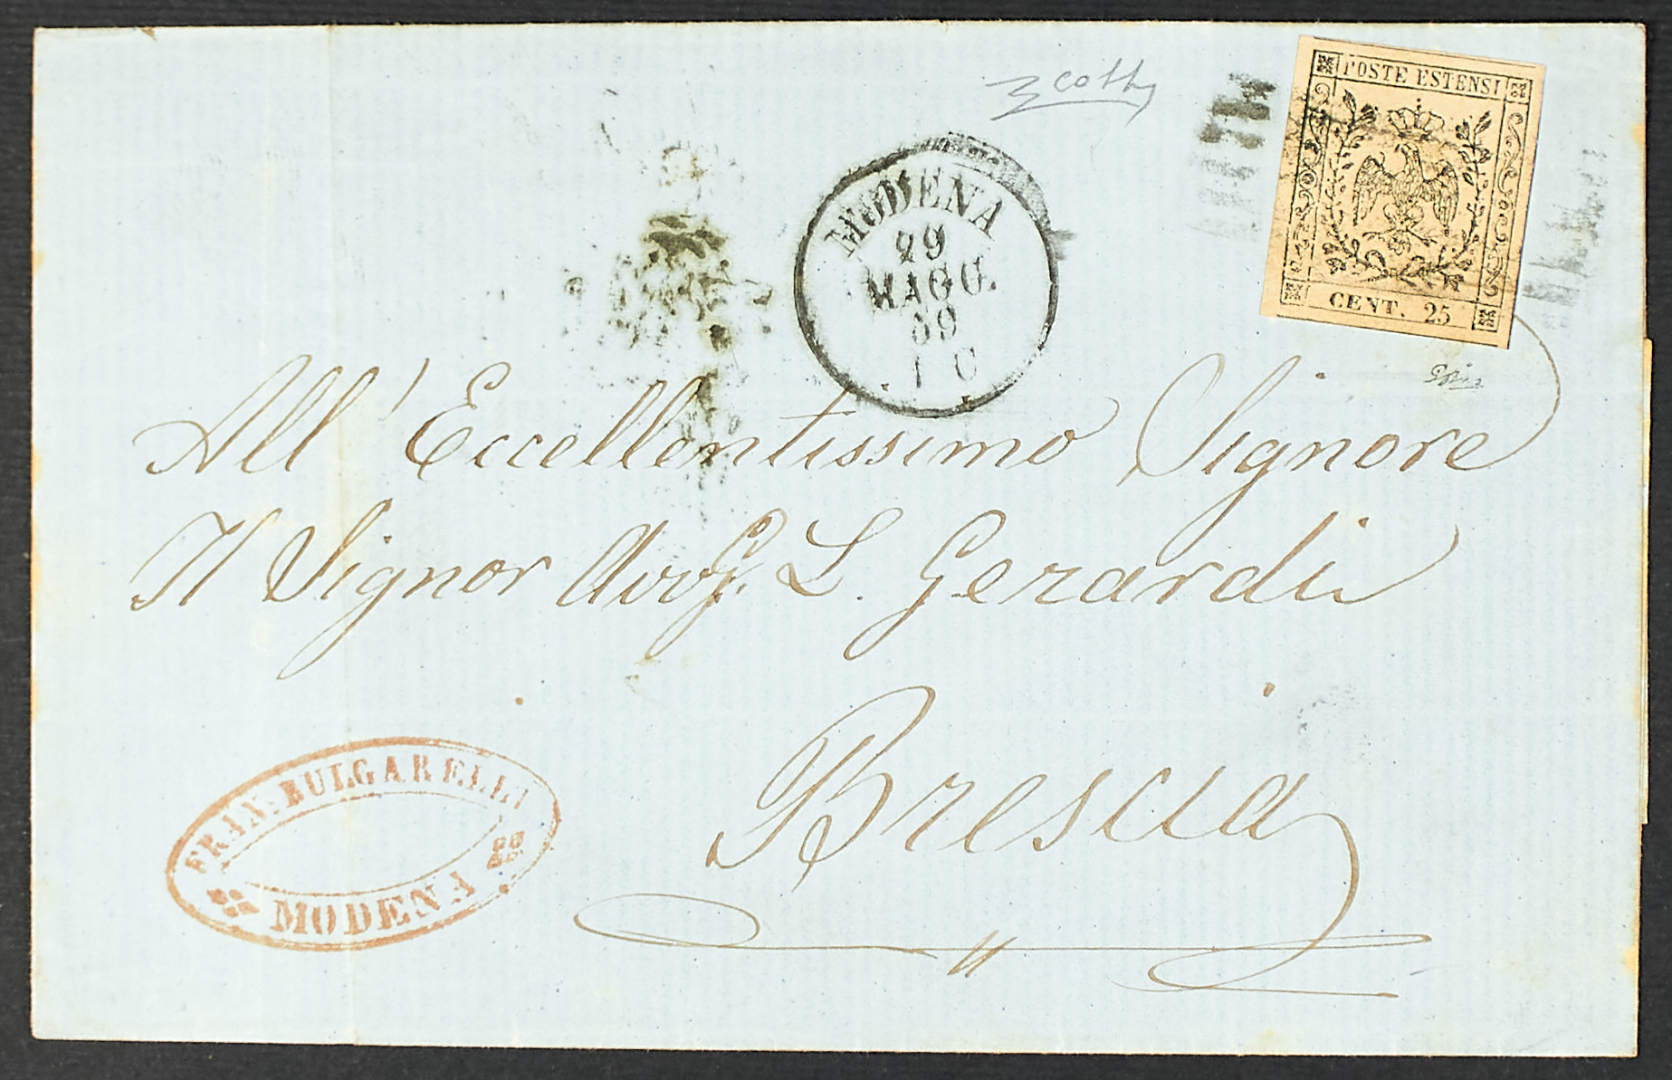 POSTE ESTENSI
CENT. 25
MODENA
29
MAGG.
59
All' Eccellentissimo Signore
Il Signor Avvg. L. Gerardi
Brescia
FRAN. BULGARELLI
MODENA